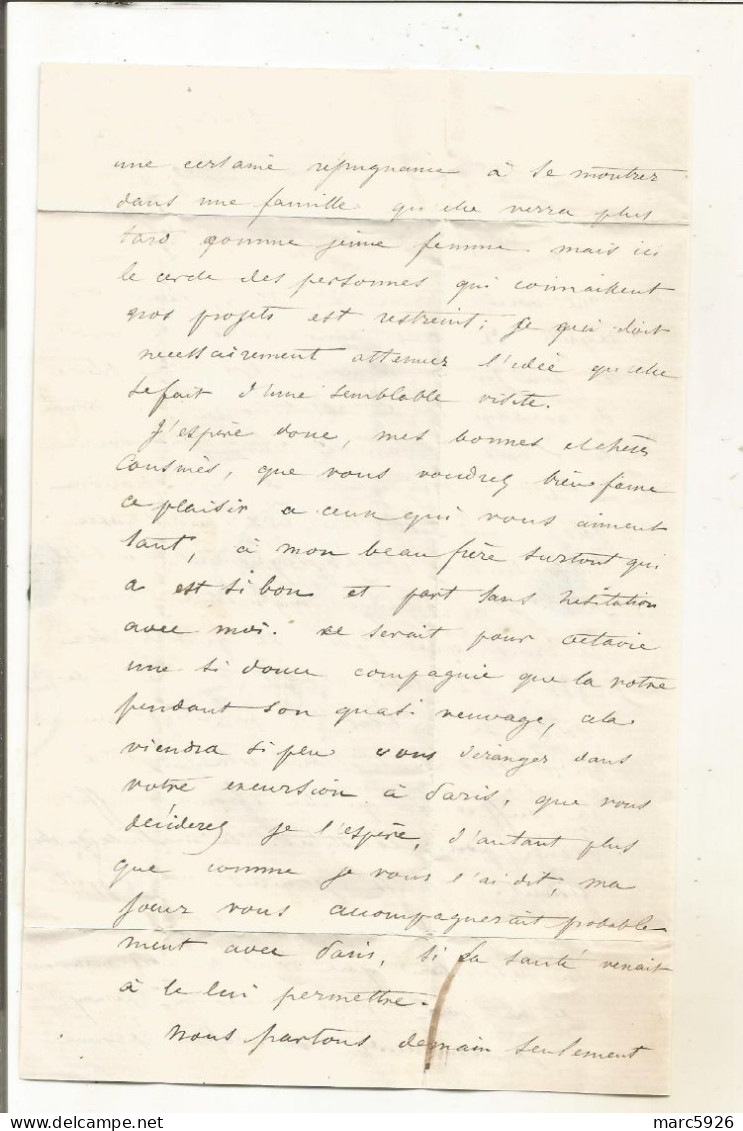 une certaine répugnance à se montrer
dans une famille qu'elle verra plus
tard comme jeune femme. mais ici
le cercle des personnes qui connaissent
nos projets est restreint; ce qui doit
necessairement attenuer l'idée qu'elle
se fait d'une semblable visite.
J'espère donc, mes bonnes et chères
Cousines, que vous voudrez bien faire
ce plaisir a ceux qui vous aiment
tant, à mon beau frère surtout qui
a est si bon et part sans hesitation
avec moi. ce serait pour Octavie
une si douce compagnie que la votre
pendant son quasi veuvage, cela
viendra si peu vous déranger dans
votre excursion à Paris, que vous
déciderez je l'espère, d'autant plus
que comme je vous l'ai dit, ma
soeur vous accompagnerait probable
ment avec Paris, si sa santé venait
à le lui permettre.
Nous partons demain seulement
marc5926